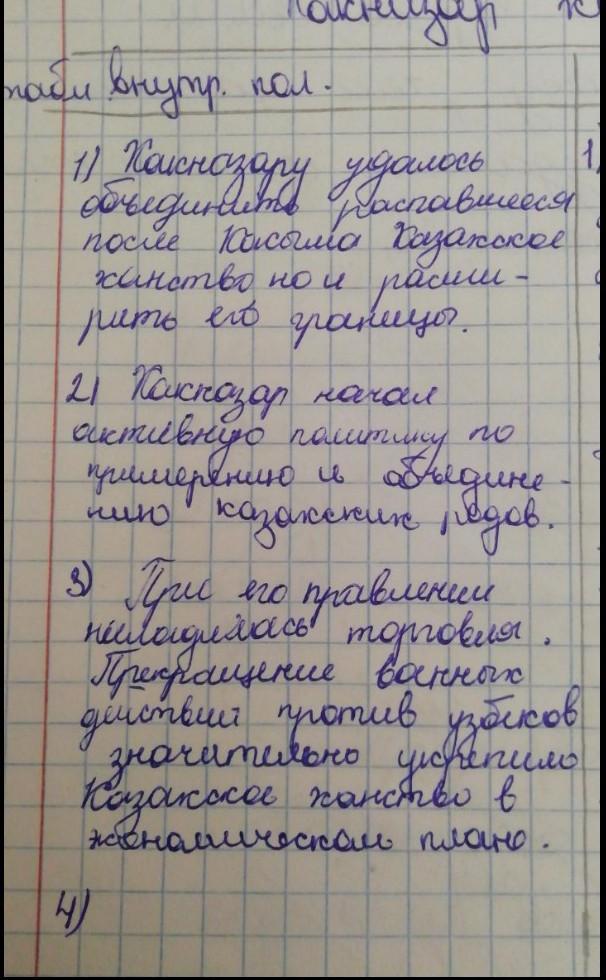 Хакназар х
табл внутр. пол.
1) Хакназару удалось
объединить распавшееся
после Касыма Казахское
ханство но и расши-
рить его границы.
2) Хакназар начал
активную политику по
примерению и объедине-
нию казахских родов.
3) При его правлении
наладилась торговля.
Прекращение военных
действий против узбеков
значительно укрепило
Казахское ханство в
экономическом плане.
4)
1)